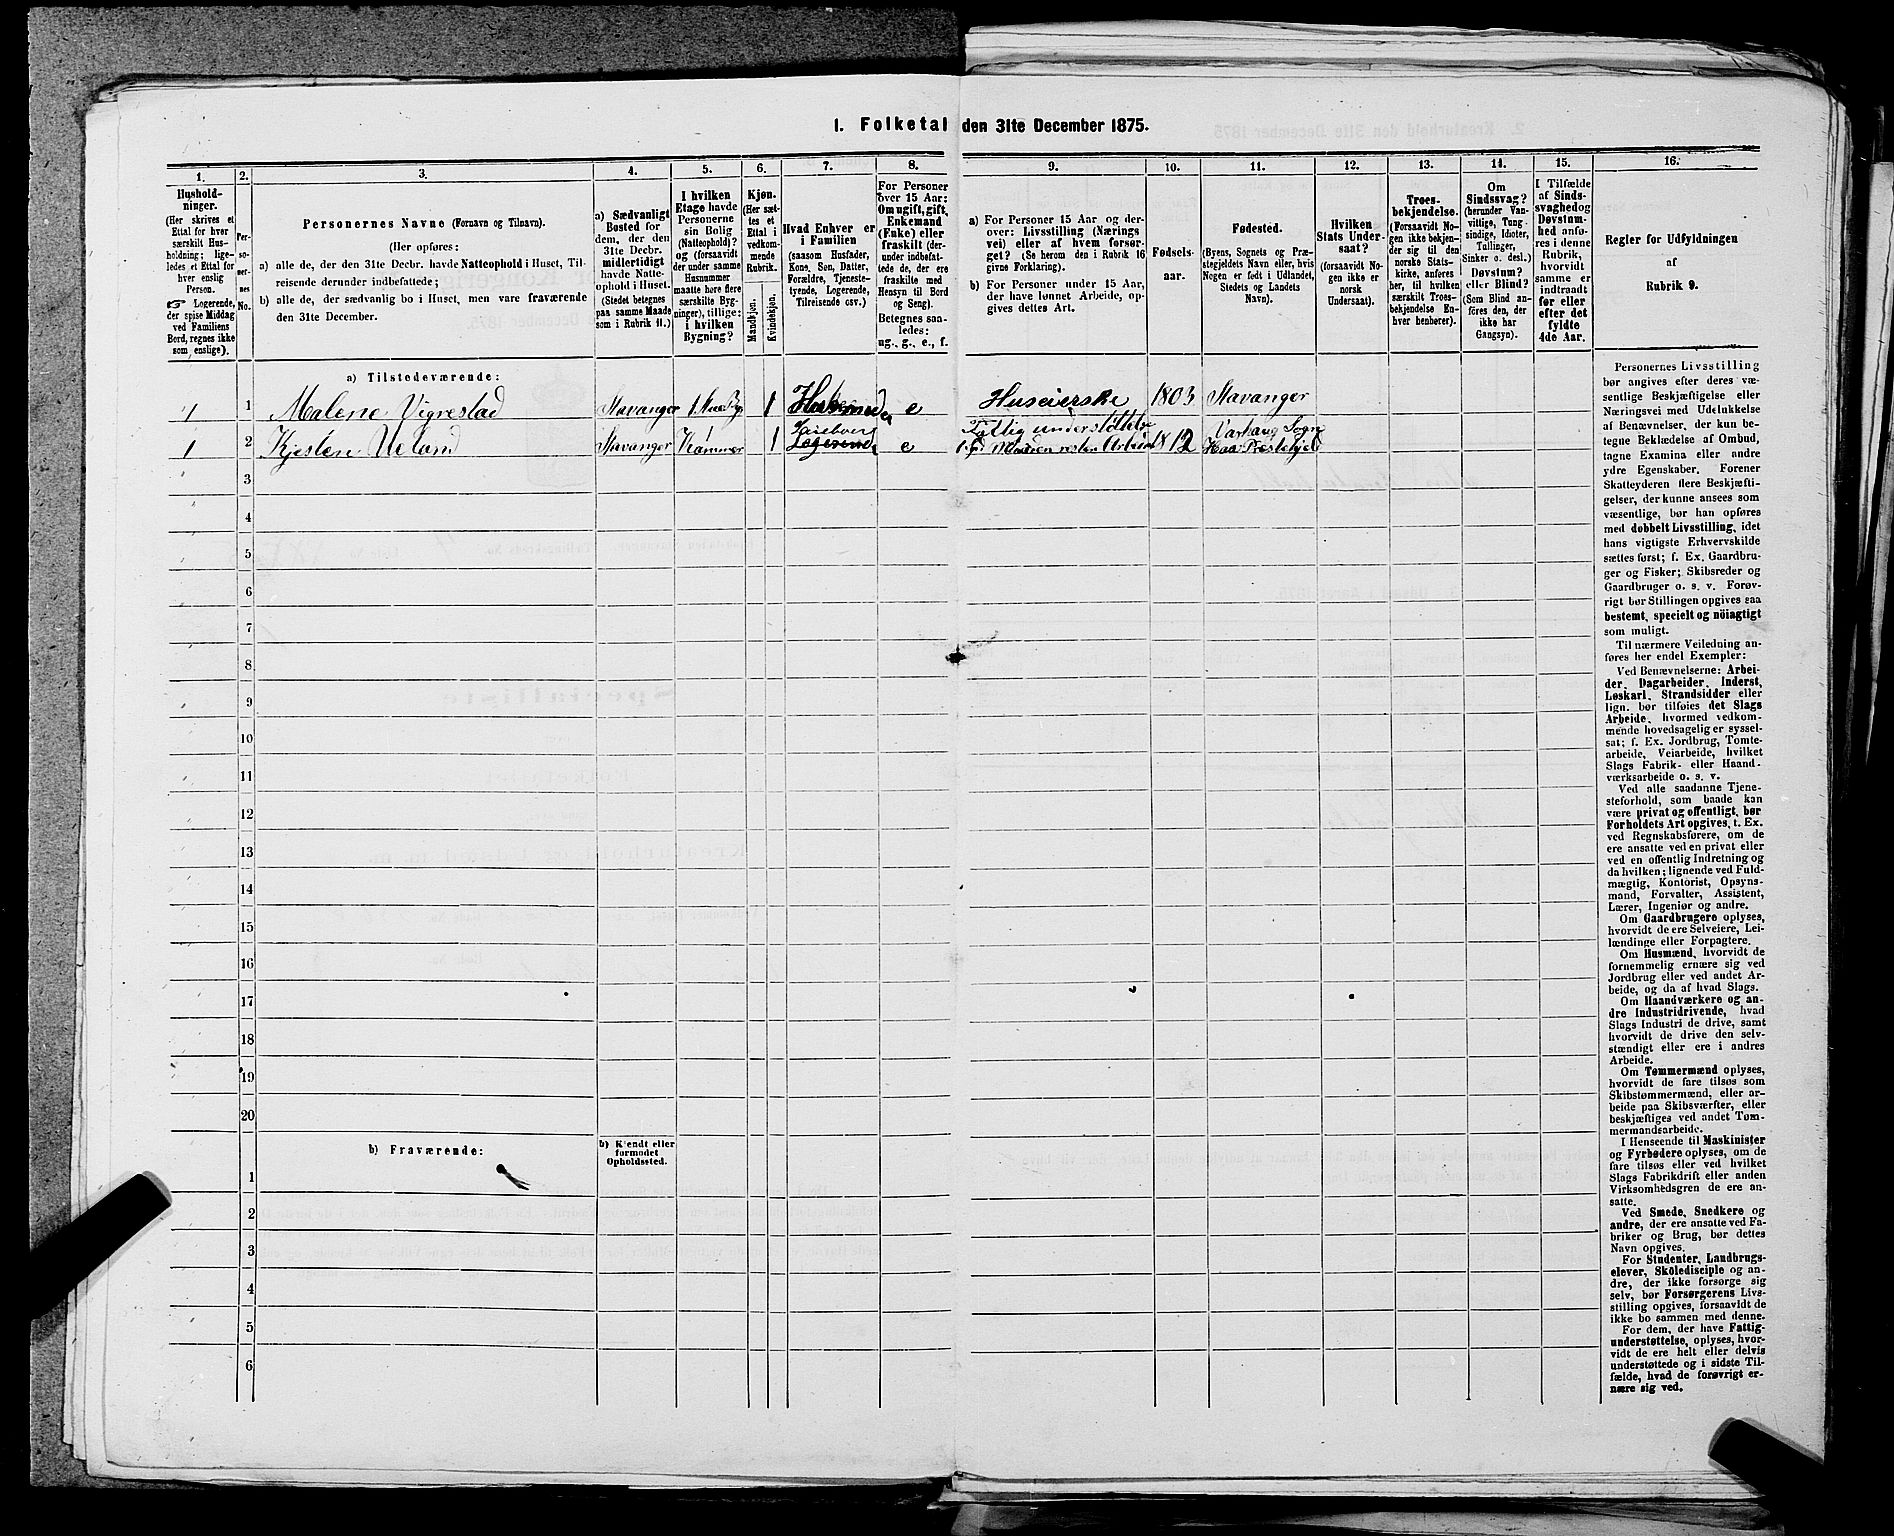 1. Folketal den 31te December 1875.
1.
2.
3.
4.
5.
6.
7.
8.
9.
10.
11.
12.
13.
14.
15.
16.
Hushold-
ninger.
(Her skrives et
Ettal for hver
særskilt Hus-
holdning; lige-
ledes et Ettal for
hver enslig
Person.
☞ Logerende,
der spise Middag
ved Familiens
Bord, regnes ikke
som enslige).
Per-
so-
ner-
nes
No.
Personernes Navne (Fornavn og Tilnavn).
(Her opføres:
a) alle de, der den 31te Decbr. havde Natteophold i Huset, Til-
reisende derunder indbefattede;
b) alle de, der sædvanlig bo i Huset, men vare fraværende
den 31te December.
a) Sædvanligt
Bosted for
dem, der den
31te Decbr.
midlertidigt
havde Natte-
ophold i Huset.
(Stedet betegnes
paa samme Maade
som i Rubrik 11.)
I hvilken
Etage havde
Personerne
sin Bolig
(Natteophold)?
og (forsaavidt
der under samme
Husnummer
maatte høre flere
særskilte Byg-
ninger), tillige:
i hvilken
Bygning?
Kjøn.
(Her sæt-
tes et
Ettal i
vedkom-
mende
Rubrik.
Mandkjøn.
Kvindekjøn.
Hvad Enhver er
i Familien
(saasom Husfader,
Kone, Søn, Datter,
Forældre, Tjeneste-
tyende, Logerende,
Tilreisende osv.)
For Personer
over 15 Aar:
Om ugift, gift,
Enkemand
(Enke) eller
fraskilt (der-
under indbefat-
tede de, der ere
fraskilte med
Hensyn til Bord
og Seng).
Betegnes saa-
ledes:
ug., g., e., f.
a) For Personer 15 Aar og der-
over: Livsstilling (Nærings
vei) eller af hvem forsør-
get? (Se herom den i Rubrik 16
givne Forklaring).
b) For Personer under 15 Aar,
der have lønnet Arbeide, op-
gives dettes Art.
Fødsels-
aar.
Fødested.
(Byens, Sognets og Præ-
stegjeldets Navn eller, hvis
Nogen er født i Udlandet,
Stedets og Landets
Navn).
Hvilken
Stats Under-
saat?
(forsaavidt No-
gen ikke er
norsk
Undersaat).
Troes-
bekjendelse.
(Forsaavidt No-
gen ikke bekjen-
der sig til den
norske Stats-
kirke, anføres
her, til hvilken
særskilt Troes-
bekjendelse En-
hver henhører).
Om
Sindssvag?
(herunder Van-
vittige, Tung-
sindige, Idioter,
Tullinger,
Sinker o. desl.)
Døvstum?
eller Blind?
(Som Blind an-
føres den, der
ikke har
Gangsyn).
I Tilfælde
af Sinds-
svaghed og
Døvstum-
hed anfø-
res i denne
Rubrik,
hvorvidt
samme er
indtraadt
før eller
efter det
fyldte
4de Aar.
Regler for Udfyldningen
af
Rubrik 9.
a) Tilstedeværende:
1 1 Malene Vigrestad Stavanger 1 e Huseierske 1803 Stavanger
1 2 Kjesten Ueland Stavanger Kammer 1 Logerende e Fattig understøttelse 1812 Varhaug Sogn Haa Præstegjeld
3
4
5
6
7
8
9
10
11
12
13
14
15
16
17
18
19
20
b) Fraværende:
b) Kjendt eller
formodet
Opholdssted.
1
2
3
4
5
6
Personernes Livsstilling
bør angives efter deres væ-
sentlige Beskjæftigelse eller
Næringsvei med Udelukkelse
af Benævnelser, der kun be-
tegne Beklædelse af Ombud,
tagne Examina eller andre
ydre Egenskaber. Forener
Skatteyderen flere Beskjæfti-
gelser, der kunne ansees som
væsentlige, bør han opføres
med dobbelt Livsstilling, idet
hans vigtigste Erhvervskilde
sættes først; f. Ex. Gaardbru-
ger og Fisker; Skibsreder og
Gaardbruger o. s. v. Forøv-
rigt bør Stillingen opgives saa
bestemt, specielt og nöiagtigt
som muligt.
Til nærmere Veiledning an-
føres her endel Exempler:
Ved Benævnelserne: Arbei-
der, Dagarbeider, Inderst,
Løskarl, Strandsidder eller
lign. bør tilføies det Slags
Arbeide, hvormed vedkom-
mende hovedsagelig er syssel-
sat; f. Ex. Jordbrug, Tomte-
arbeide, Veiarbeide, hvilket
Slags Fabrik- eller Haand-
værksarbeide o. s. v.
Ved alle saadanne Tjene-
steforhold, som baade kan
være privat og offentligt, bør
Forholdets Art opgives, t. Ex.
ved Regnskabsførere, om de
ere ansatte ved en privat eller
ved en offentlig Indretning og
da hvilken; lignende ved Fuld-
mægtig, Kontorist, Opsyns-
mand, Forvalter, Assistent,
Lærer, Ingeniør og andre.
Om Gaardbrugere oplyses,
hvorvidt de ere Selveiere, Lei-
lændinge eller Forpagtere.
Om Husmænd, hvorvidt de
fornemmelig ernære sig ved
Jordbrug eller ved andet Ar-
beide, og da af hvad Slags.
Om Haandværkere og an-
dre Industridrivende, hvad
Slags Industri de drive, samt
hvorvidt de drive den selv-
stændigt eller ere i andres
Arbeide.
Om Tømmermænd oplyses,
hvorvidt de fare tilsøs som
Skibstømmermænd, eller ar-
beide paa Skibsværfter, eller
beskjæftiges ved andet Tøm-
mermandsarbeide.
I Henseende til Maskinister
og Fyrbødere oplyses, om de
fare tilsøs eller ved hvilket
Slags Fabrikdrift eller anden
Virksomhedsgren de ere an-
satte.
Ved Smede, Snedkere og
andre, der ere ansatte ved Fa-
briker og Brug, bør dettes
Navn opgives.
For Studenter, Landbrugs-
elever, Skoledisciple og an-
dre, der ikke forsørge sig
selv, bør Forsørgerens Livs-
stilling opgives, forsaavidt de
ikke bo sammen med denne.
For dem, der have Fattig-
understøttelse, oplyses, hvor-
vidt de ere helt eller delvis
understøttede og i sidste Til-
fælde, hvad de forøvrigt er-
nære sig ved.